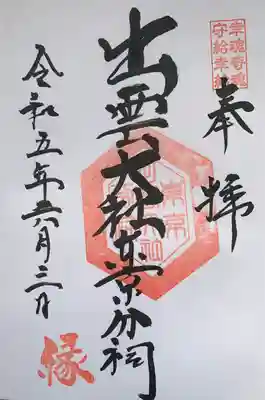 幸魂奇魂
守給幸給
奉拝
出雲大社東京分祠
令和五年六月三日
縁